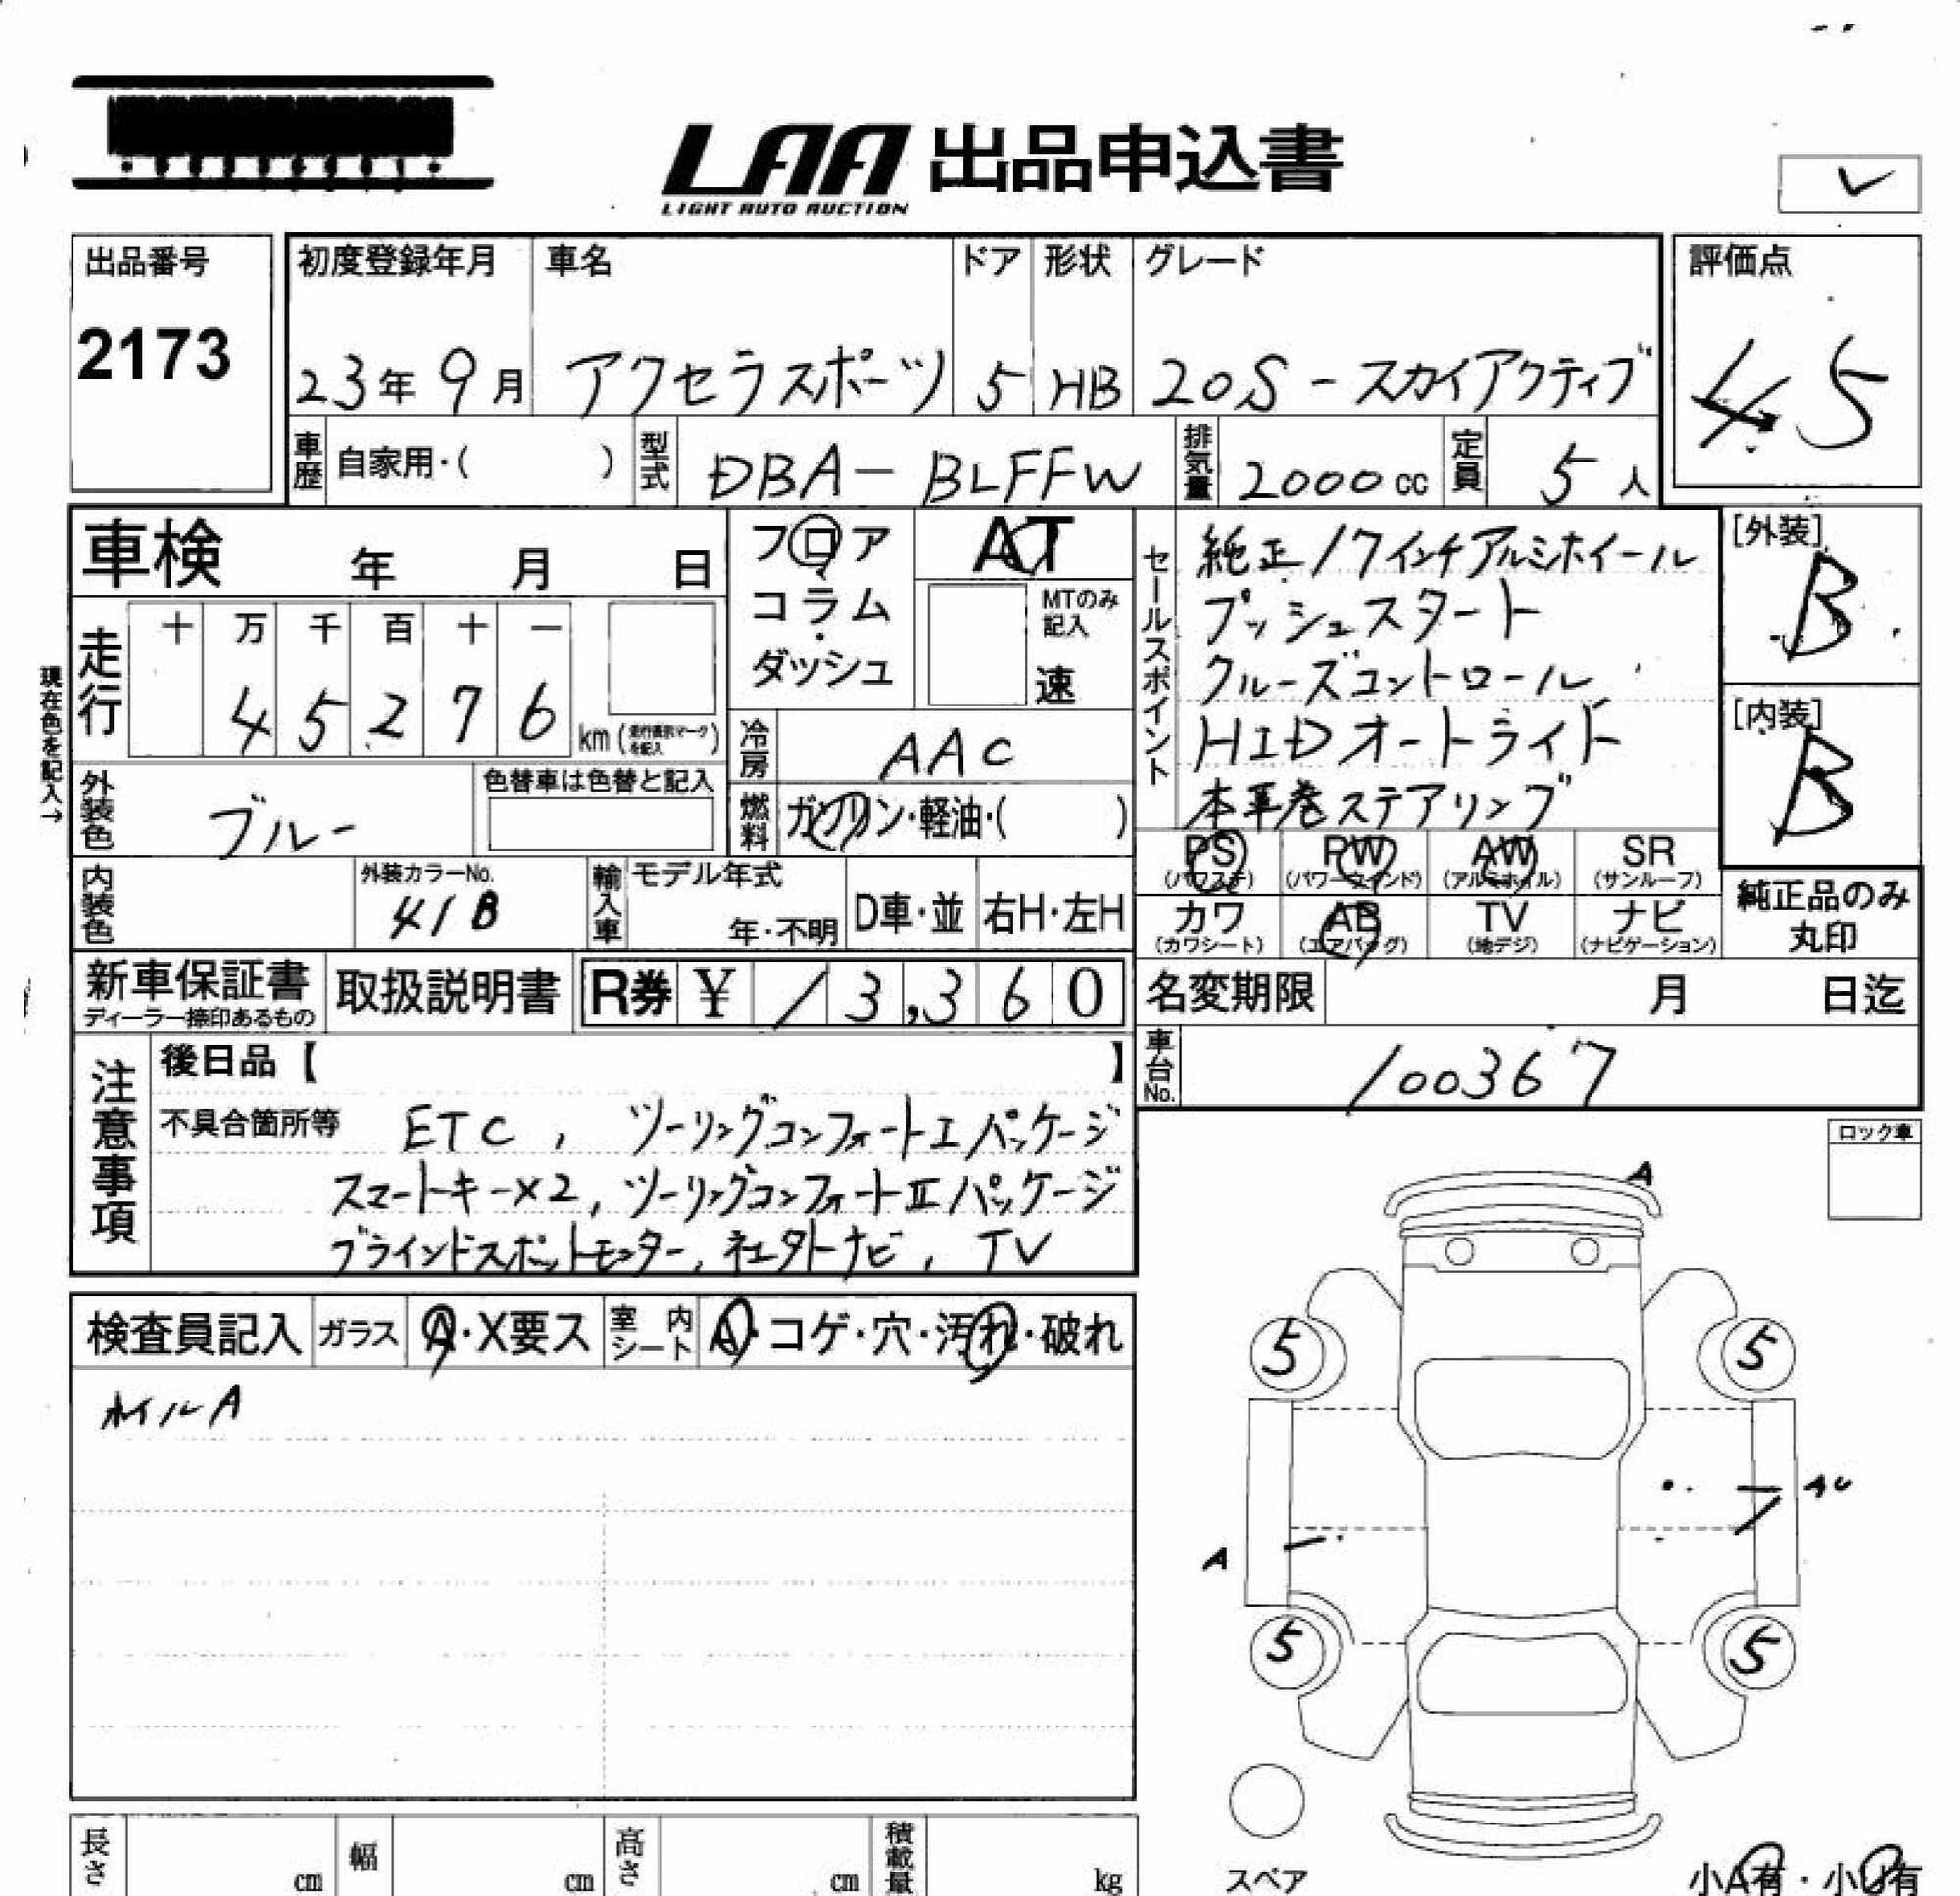 LAA 出品申込書
LIGHT AUTO AUCTION
出品番号
2173
初度登録年月
23年 9月
車名
アクセラスポーツ
ドア
5
形状
HB
グレード
20S-スカイアクティブ
評価点
4.5
車歴
自家用・( )
型式
DBA-BLFFW
排気量
2000 cc
定員
5 人
車検 年 月 日
フロア
コラム
・
ダッシュ
AT
MTのみ
記入
速
セールスポイント
純正17インチアルミホイール
プッシュスタート
クルーズコントロール
HIDオートライト
本革巻ステアリング
[外装]
B
[内装]
B
現在色を記入→
走行
十 万 千 百 十 一
4 5 2 7 6
km (走行表示マークを記入)
冷房
AAC
外装色
ブルー
色替車は色替と記入
燃料
ガソリン・軽油・( )
PS (パワステ)
PW (パワーウインド)
AW (アルミホイル)
SR (サンルーフ)
カワ (カワシート)
AB (エアバッグ)
TV (地デジ)
ナビ (ナビゲーション)
純正品のみ
丸印
内装色
外装カラーNo.
41B
輸入車
モデル年式
年・不明
D車・並
右H・左H
新車保証書
ディーラー捺印あるもの
取扱説明書
R券 ¥ 13,360
名変期限 月 日迄
車台No.
100367
注意事項
後日品【 】
不具合箇所等 ETC, ツーリングコンフォートIパッケージ
スマートキー×2, ツーリングコンフォートIIパッケージ
ブラインドスポットモニター, 社外ナビ, TV
ロック車
検査員記入
ガラス
A・X要ス
室内シート
A・コゲ・穴・汚れ・破れ
ホイルA
A
5
5
AU
A
5
5
スペア
小A有・小U有
長さ cm
幅 cm
高さ cm
積載量 kg